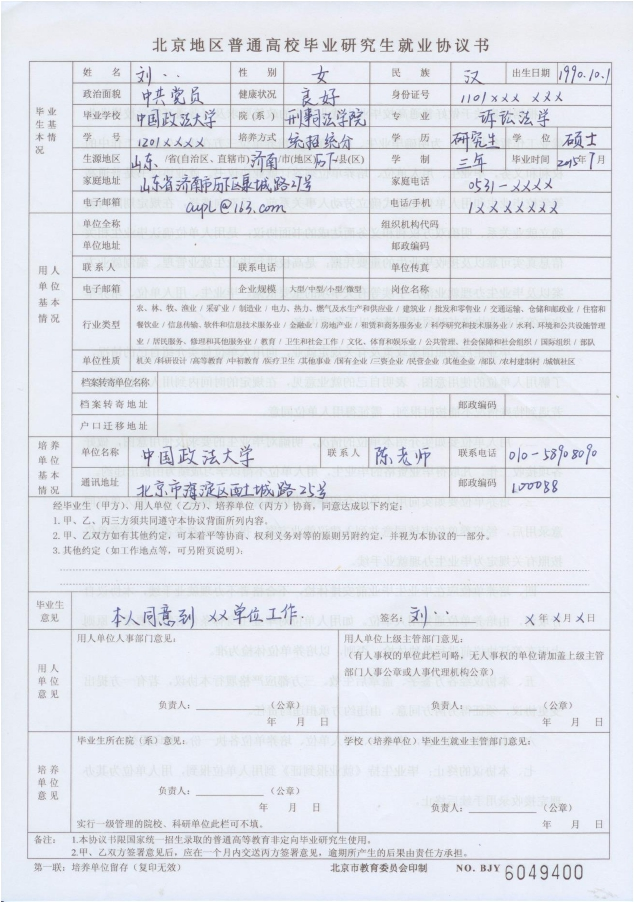 北京地区普通高校毕业研究生就业协议书
毕业生基本情况
姓名 刘·· 性别 女 民族 汉 出生日期 1990.10.1
政治面貌 中共党员 健康状况 良好 身份证号 1101xxx xxx
毕业学校 中国政法大学 院(系) 刑事司法学院 专业 诉讼法学
学号 1201xxxx 培养方式 统招统分 学历 研究生 学位 硕士
生源地区 山东、/省(自治区、直辖市) 济南 /市(地区) 历下 /县(区) 学制 三年 毕业时间 2015年7月
家庭地址 山东省济南市历下区泉城路27号 家庭电话 0531-xxxx
电子邮箱 cupl@163.com 电话/手机 1xxxxxxx
用人单位基本情况
单位全称 组织机构代码
单位地址 邮政编码
联系人 联系电话 单位传真
电子邮箱 企业规模 大型/中型/小型/微型 岗位名称
行业类型 农、林、牧、渔业/采矿业/制造业/电力、热力、燃气及水生产和供应业/建筑业/批发和零售业/交通运输、仓储和邮政业/住宿和
餐饮业/信息传输、软件和信息技术服务业/金融业/房地产业/租赁和商务服务业/科学研究和技术服务业/水利、环境和公共设施管理
业/居民服务、修理和其他服务业/教育/卫生和社会工作/文化、体育和娱乐业/公共管理、社会保障和社会组织/国际组织/部队
单位性质 机关/科研设计/高等教育/中初教育/医疗卫生/其他事业/国有企业/三资企业/民营企业/其他企业/部队/农村建制村/城镇社区
档案转寄单位名称
档案转寄地址 邮政编码
户口迁移地址
培养单位基本情况
单位名称 中国政法大学 联系人 陈老师 联系电话 010-58908090
通讯地址 北京市海淀区西土城路25号 邮政编码 100088
经毕业生(甲方)、用人单位(乙方)、培养单位(丙方)协商,同意达成以下约定:
1. 甲、乙、丙三方须共同遵守本协议背面所列内容。
2. 甲、乙双方如有其他约定,可本着平等协商、权利义务对等的原则另附约定,并视为本协议的一部分。
3. 其他约定(如工作地点等,可另附页说明):
毕业生意见 本人同意到 xx单位工作. 签名: 刘·· x年x月x日
用人单位意见
用人单位人事部门意见: 用人单位上级主管部门意见:
(有人事权的单位此栏可略,无人事权的单位请加盖上级主管
部门人事公章或人事代理机构公章)
负责人: (公章) 负责人: (公章)
年 月 日 年 月 日
培养单位意见
毕业生所在院(系)意见: 学校(培养单位)毕业生就业主管部门意见:
负责人: (公章)
年 月 日
负责人: (公章)
年 月 日
实行一级管理的院校、科研单位此栏可不填。
备注: 1.本协议书限国家统一招生录取的普通高等教育非定向毕业研究生使用。
2.甲、乙双方签署意见后,应在一个月内交送丙方签署意见,逾期所产生的后果由责任方承担。
第一联:培养单位留存(复印无效) 北京市教育委员会印制 NO. BJY 6049400